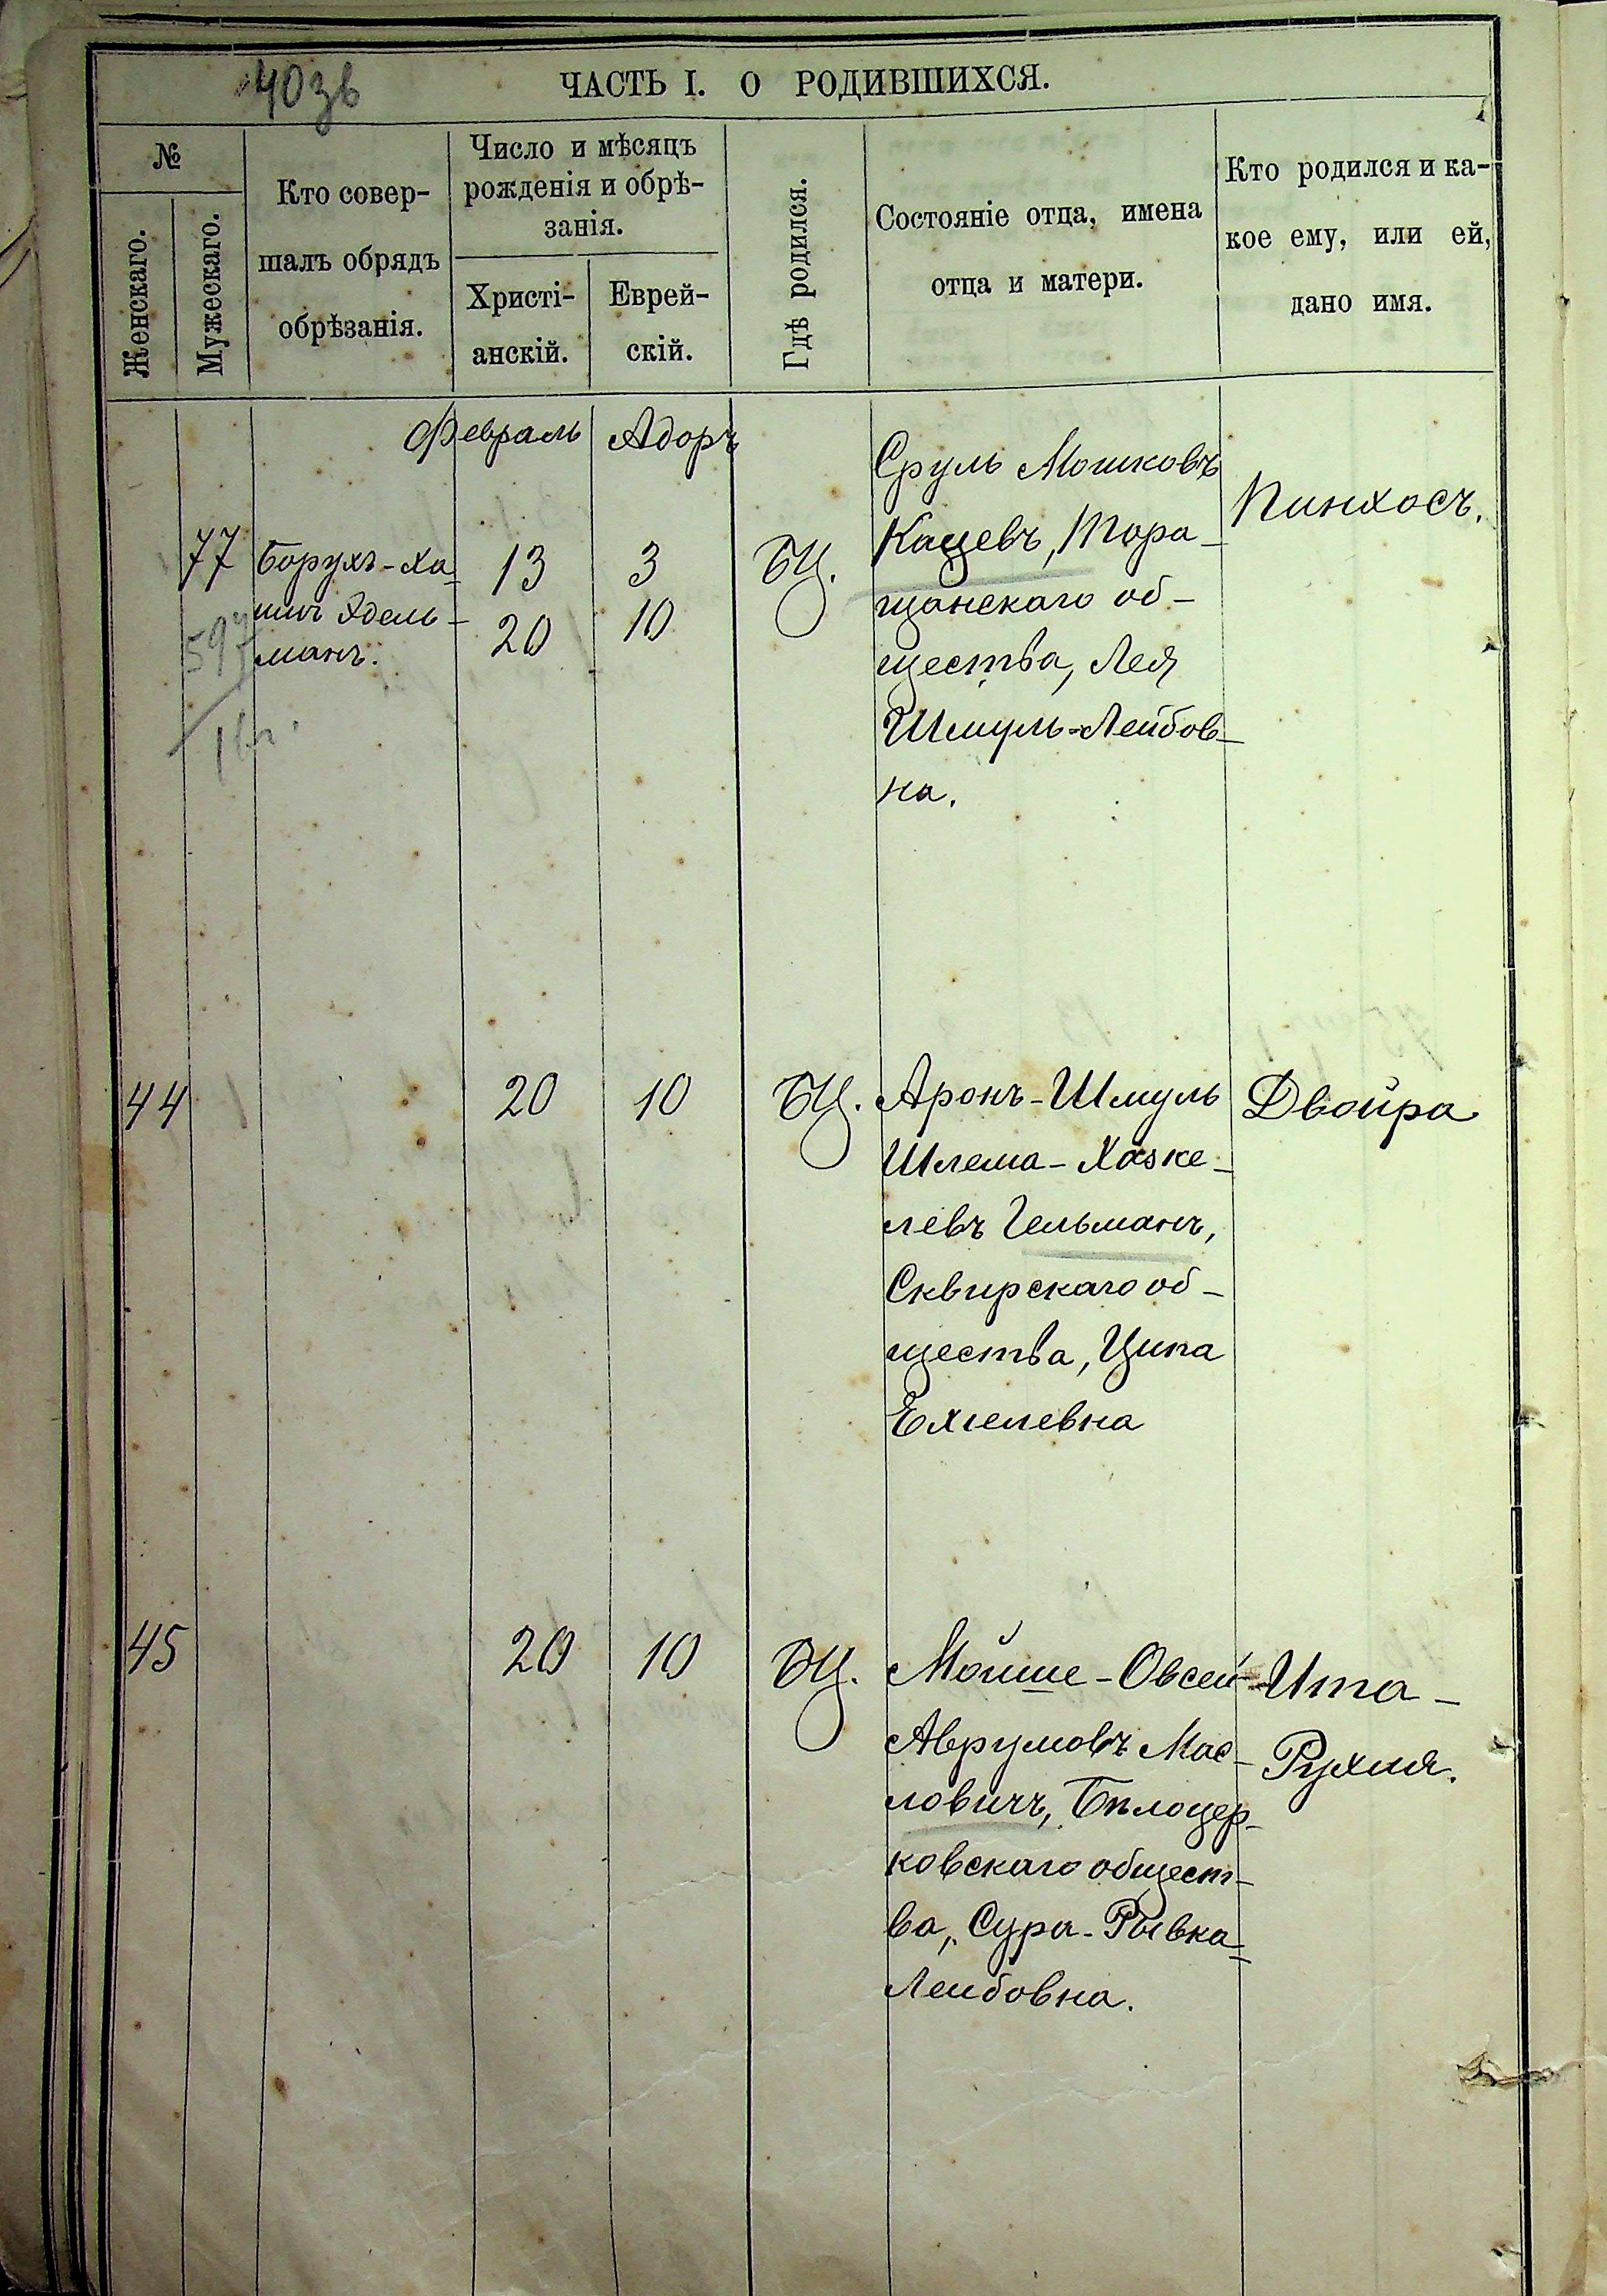 40зв
ЧАСТЬ I. О РОДИВШИХСЯ.
№
Женскаго.
Мужескаго.
Кто совер-
шалъ обрядъ
обрѣзанія.
Число и мѣсяцъ
рожденія и обрѣ-
занія.
Христі-
анскій.
Еврей-
скій.
Гдѣ родился.
Состояніе отца, имена
отца и матери.
Кто родился и ка-
кое ему, или ей,
дано имя.
Февраль Адоръ
77
Борухъ-Ха-
имъ Эдель-
манъ.
13 3
20 10
БЦ.
Сруль Мошковъ
Кацевъ, Тора-
щанскаго об-
щества, Лея
Шмуль-Лейбов-
на.
Пинхосъ.
44
20 10
БЦ.
Аронъ-Шмуль
Шлема-Хаzке-
левъ Гельманъ,
Сквирскаго об-
щества, Ципа
Ехилевна
Двойра
45
20 10
БЦ.
Мойше-Овсей
Аврумовъ Мас-
ловичъ, Бѣлоцер-
ковскаго общест-
ва, Сура-Рывка
Леибовна.
Ита-
Рухля.